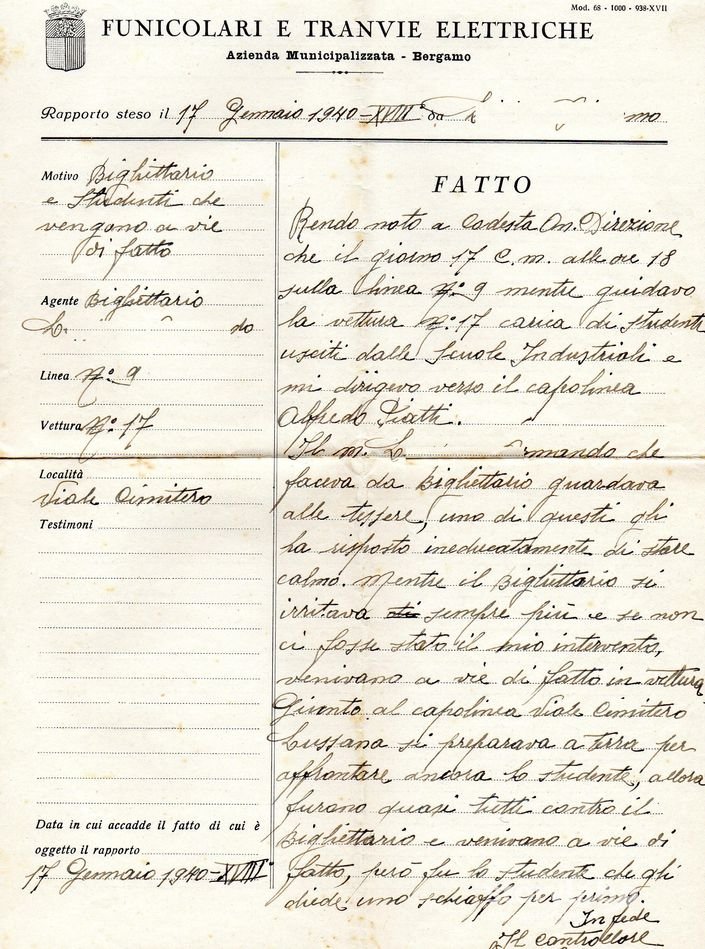 Mod. 68 - 1000 - 938-XVII
FUNICOLARI E TRANVIE ELETTRICHE
Azienda Municipalizzata - Bergamo
Rapporto steso il 17 Gennaio 1940-XVIII° da L mo
Motivo Bighettario
e Studenti che
vengono a vie
di fatto
Agente Bighettario
L do
Linea N° 9
Vettura N° 17
Località
Viale Cimitero
Testimoni
Data in cui accadde il fatto di cui è
oggetto il rapporto
17 Gennaio 1940-XVIII°
FATTO
Rendo noto a Codesta On. Direzione
che il giorno 17 C.m. alle ore 18
sulla linea N° 9 mentre guidavo
la vettura N° 17 carica di studenti
usciti dalle Scuole Industriali e
mi dirigevo verso il capolinea
Alfredo Piatti.
Il m. L rmando che
faceva da Bighettario guardava
alle tessere, uno di questi gli
ha risposto ineducatamente di stare
calmo. Mentre il Bighettario si
irritava sempre più e se non
ci fosse stato il mio intervento,
venivano a vie di fatto in vettura
Giunto al capolinea Viale Cimitero
Lussana si preparava a terra per
affrontare ancora lo studente, allora
furono quasi tutti contro il
Bighettario e venivano a vie di
fatto, però fu lo studente che gli
diede uno schiaffo per primo.
In fede
Il controllore